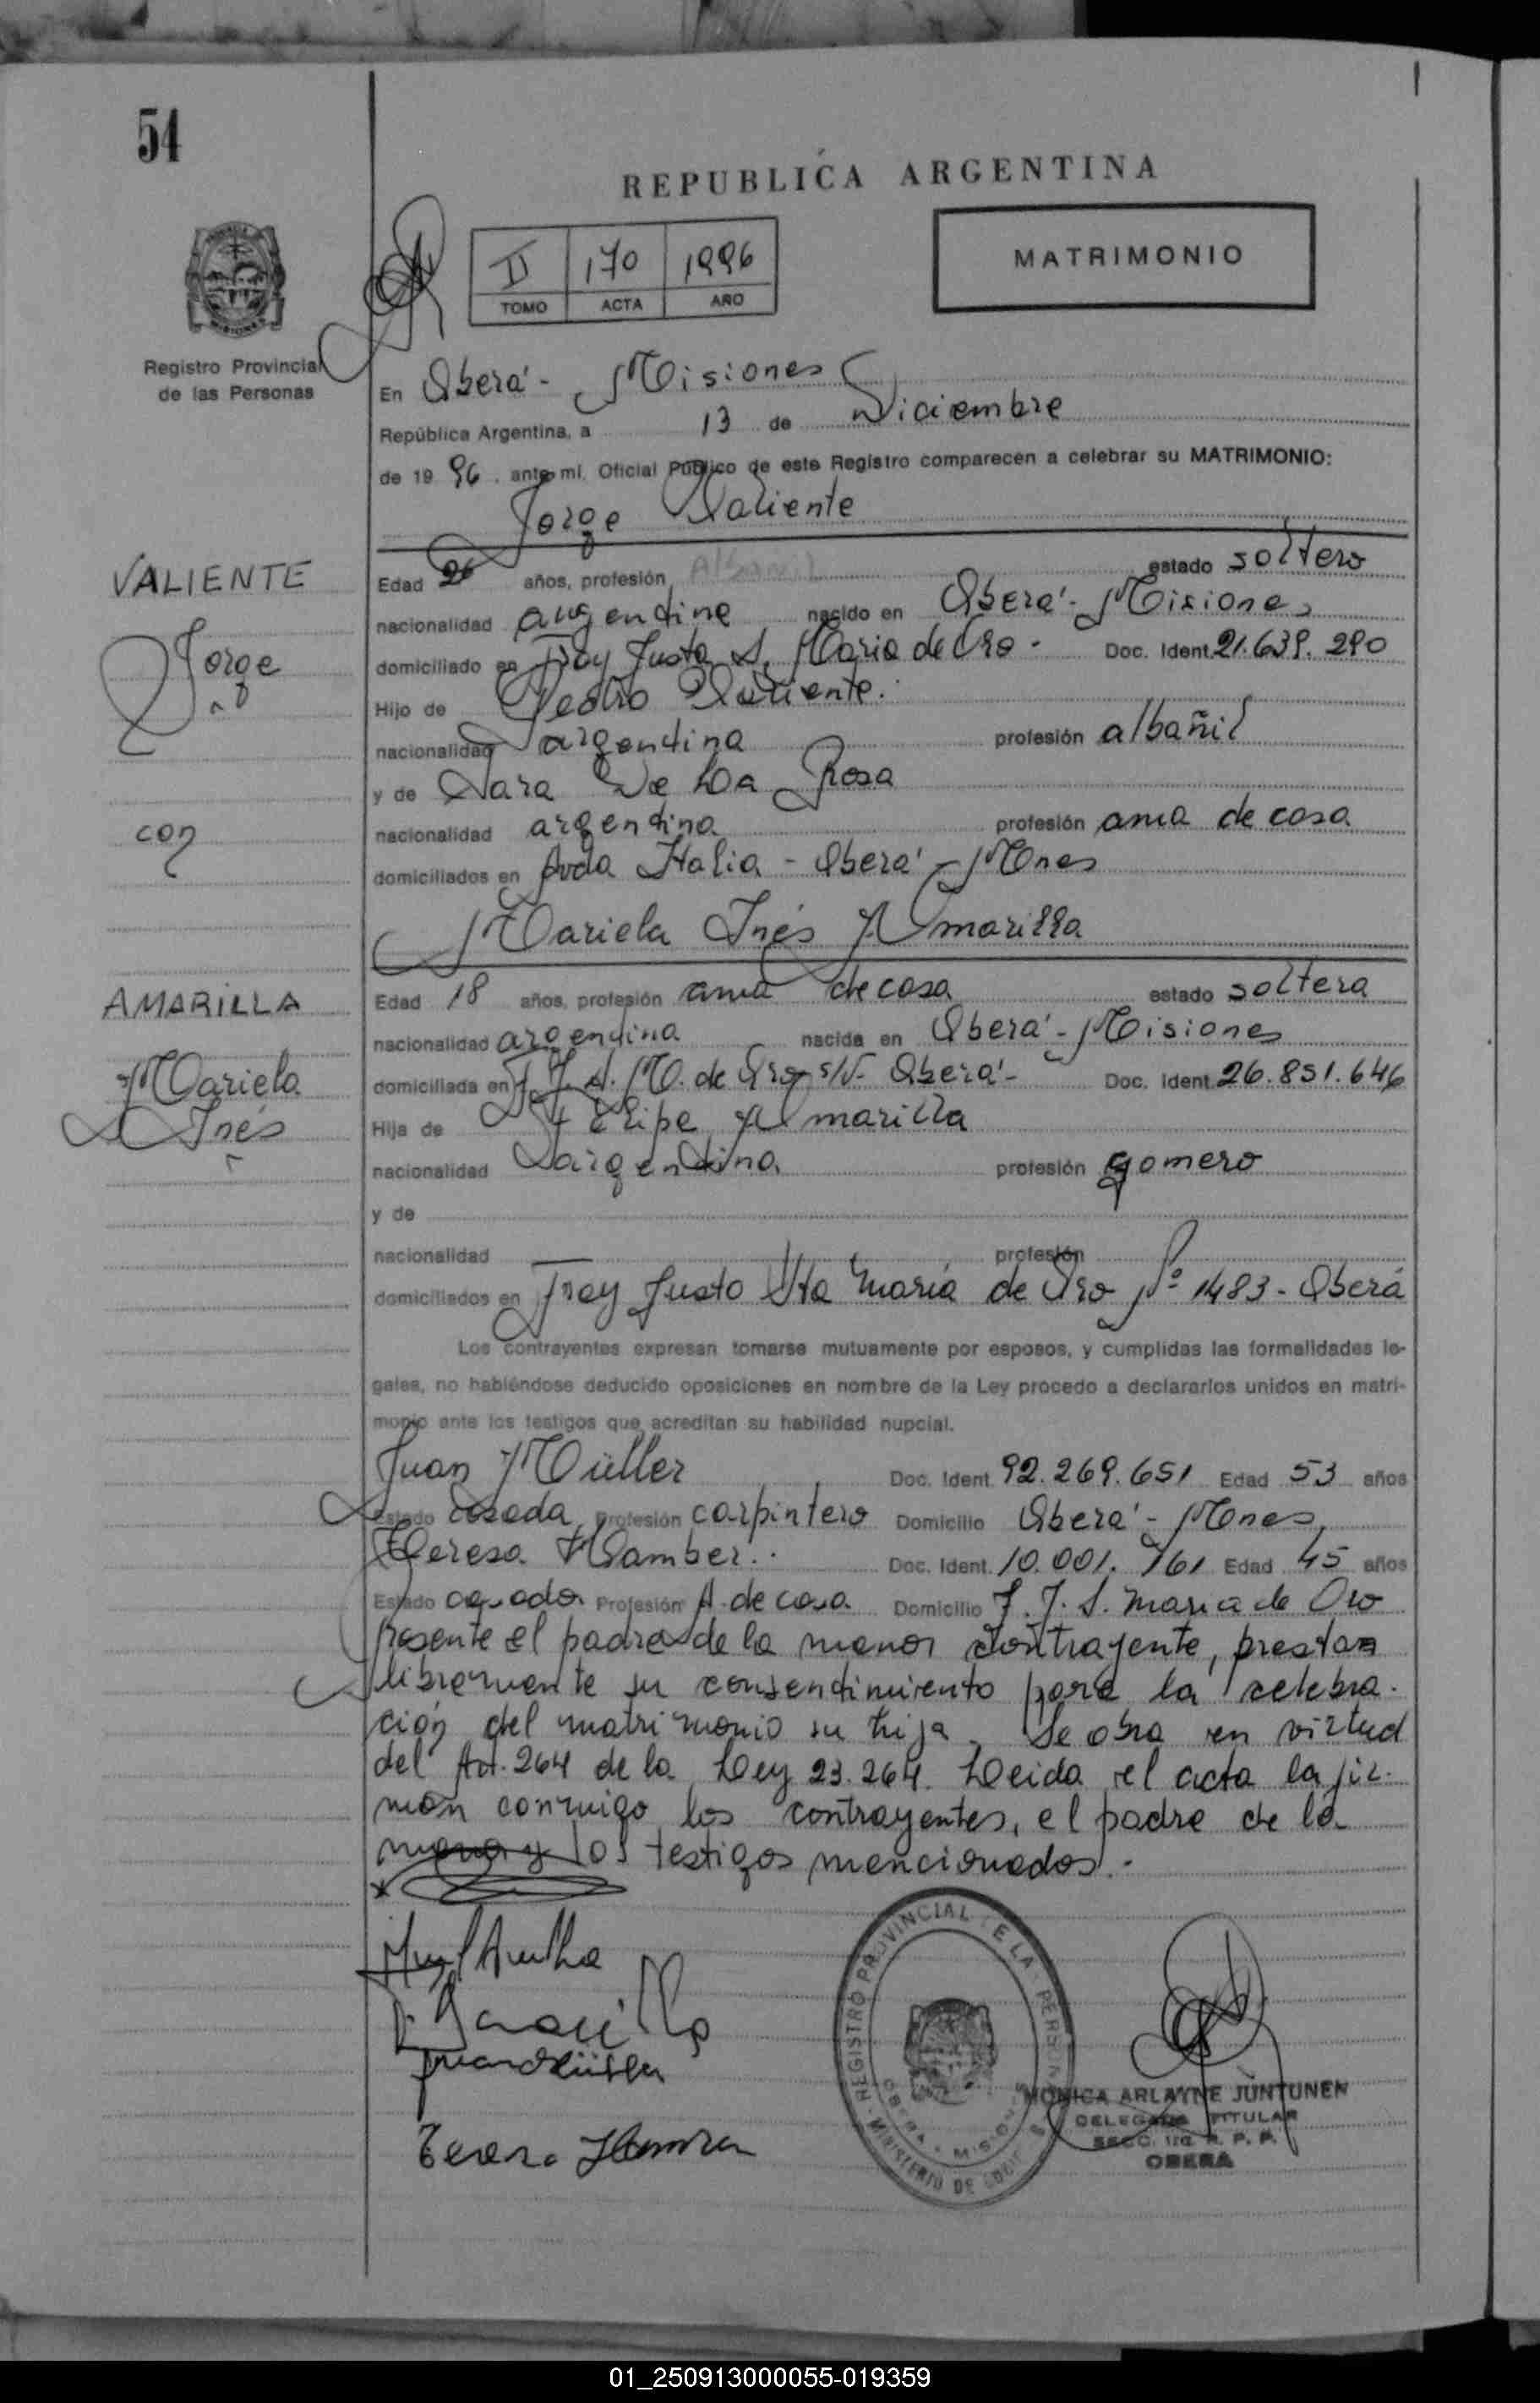 54
REPUBLICA ARGENTINA
II 170 1996
TOMO ACTA AÑO
MATRIMONIO
Registro Provincial
de las Personas
En Oberá - Misiones
República Argentina, a 13 de Diciembre
de 19 96. ante mi, Oficial Público de este Registro comparecen a celebrar su MATRIMONIO:
Jorge Valiente
VALIENTE
Jorge
con
AMARILLA
Mariela
Inés
Edad 26 años, profesión Albañil estado soltero
nacionalidad argentina nacido en Oberá - Misiones
domiciliado en Fray Justo S. María de Oro - Doc. Ident. 21.639.290
Hijo de Pedro Valiente.
nacionalidad argentina profesión albañil
y de Sara De La Rosa
nacionalidad argentina profesión ama de casa
domiciliados en Avda Italia - Oberá - Mnes
Mariela Inés Amarilla
Edad 18 años, profesión ama de casa estado soltera
nacionalidad argentina nacida en Oberá - Misiones
domiciliada en F. J. S. M. de Oro s/N - Oberá - Doc. Ident. 26.851.646
Hija de Felipe Amarilla
nacionalidad argentina profesión gomero
y de
nacionalidad profesión
domiciliados en Fray Justo Sta María de Oro Nº 1483 - Oberá
Los contrayentes expresan tomarse mutuamente por esposos, y cumplidas las formalidades le-
gales, no habiéndose deducido oposiciones en nombre de la Ley procedo a declararlos unidos en matri-
monio ante los testigos que acreditan su habilidad nupcial.
Juan Müller Doc. Ident. 92.269.651 Edad 53 años
Estado casada Profesión carpintero Domicilio Oberá - Mnes
Teresa Hamber. Doc. Ident. 10.001.161 Edad 45 años
Estado casada Profesión A. de casa Domicilio F. J. S. Maria de Oro
Presente el padre de la menor contrayente, presta
libremente su consentimiento para la celebra-
ción del matrimonio su hija. Se obra en virtud
del Art. 264 de la Ley 23.264. Leida el acta la fir-
man conmigo los contrayentes, el padre de la
menor y los testigos mencionados.-
Juan Müller
REGISTRO PROVINCIAL DE LA PERSONAS
OBERA - MISIONES
MINISTERIO DE GOB
MONICA ARLAYNE JUNTUNEN
DELEGADA TITULAR
SECC. 1ra. R. P. P.
OBERA
01_250913000055-019359